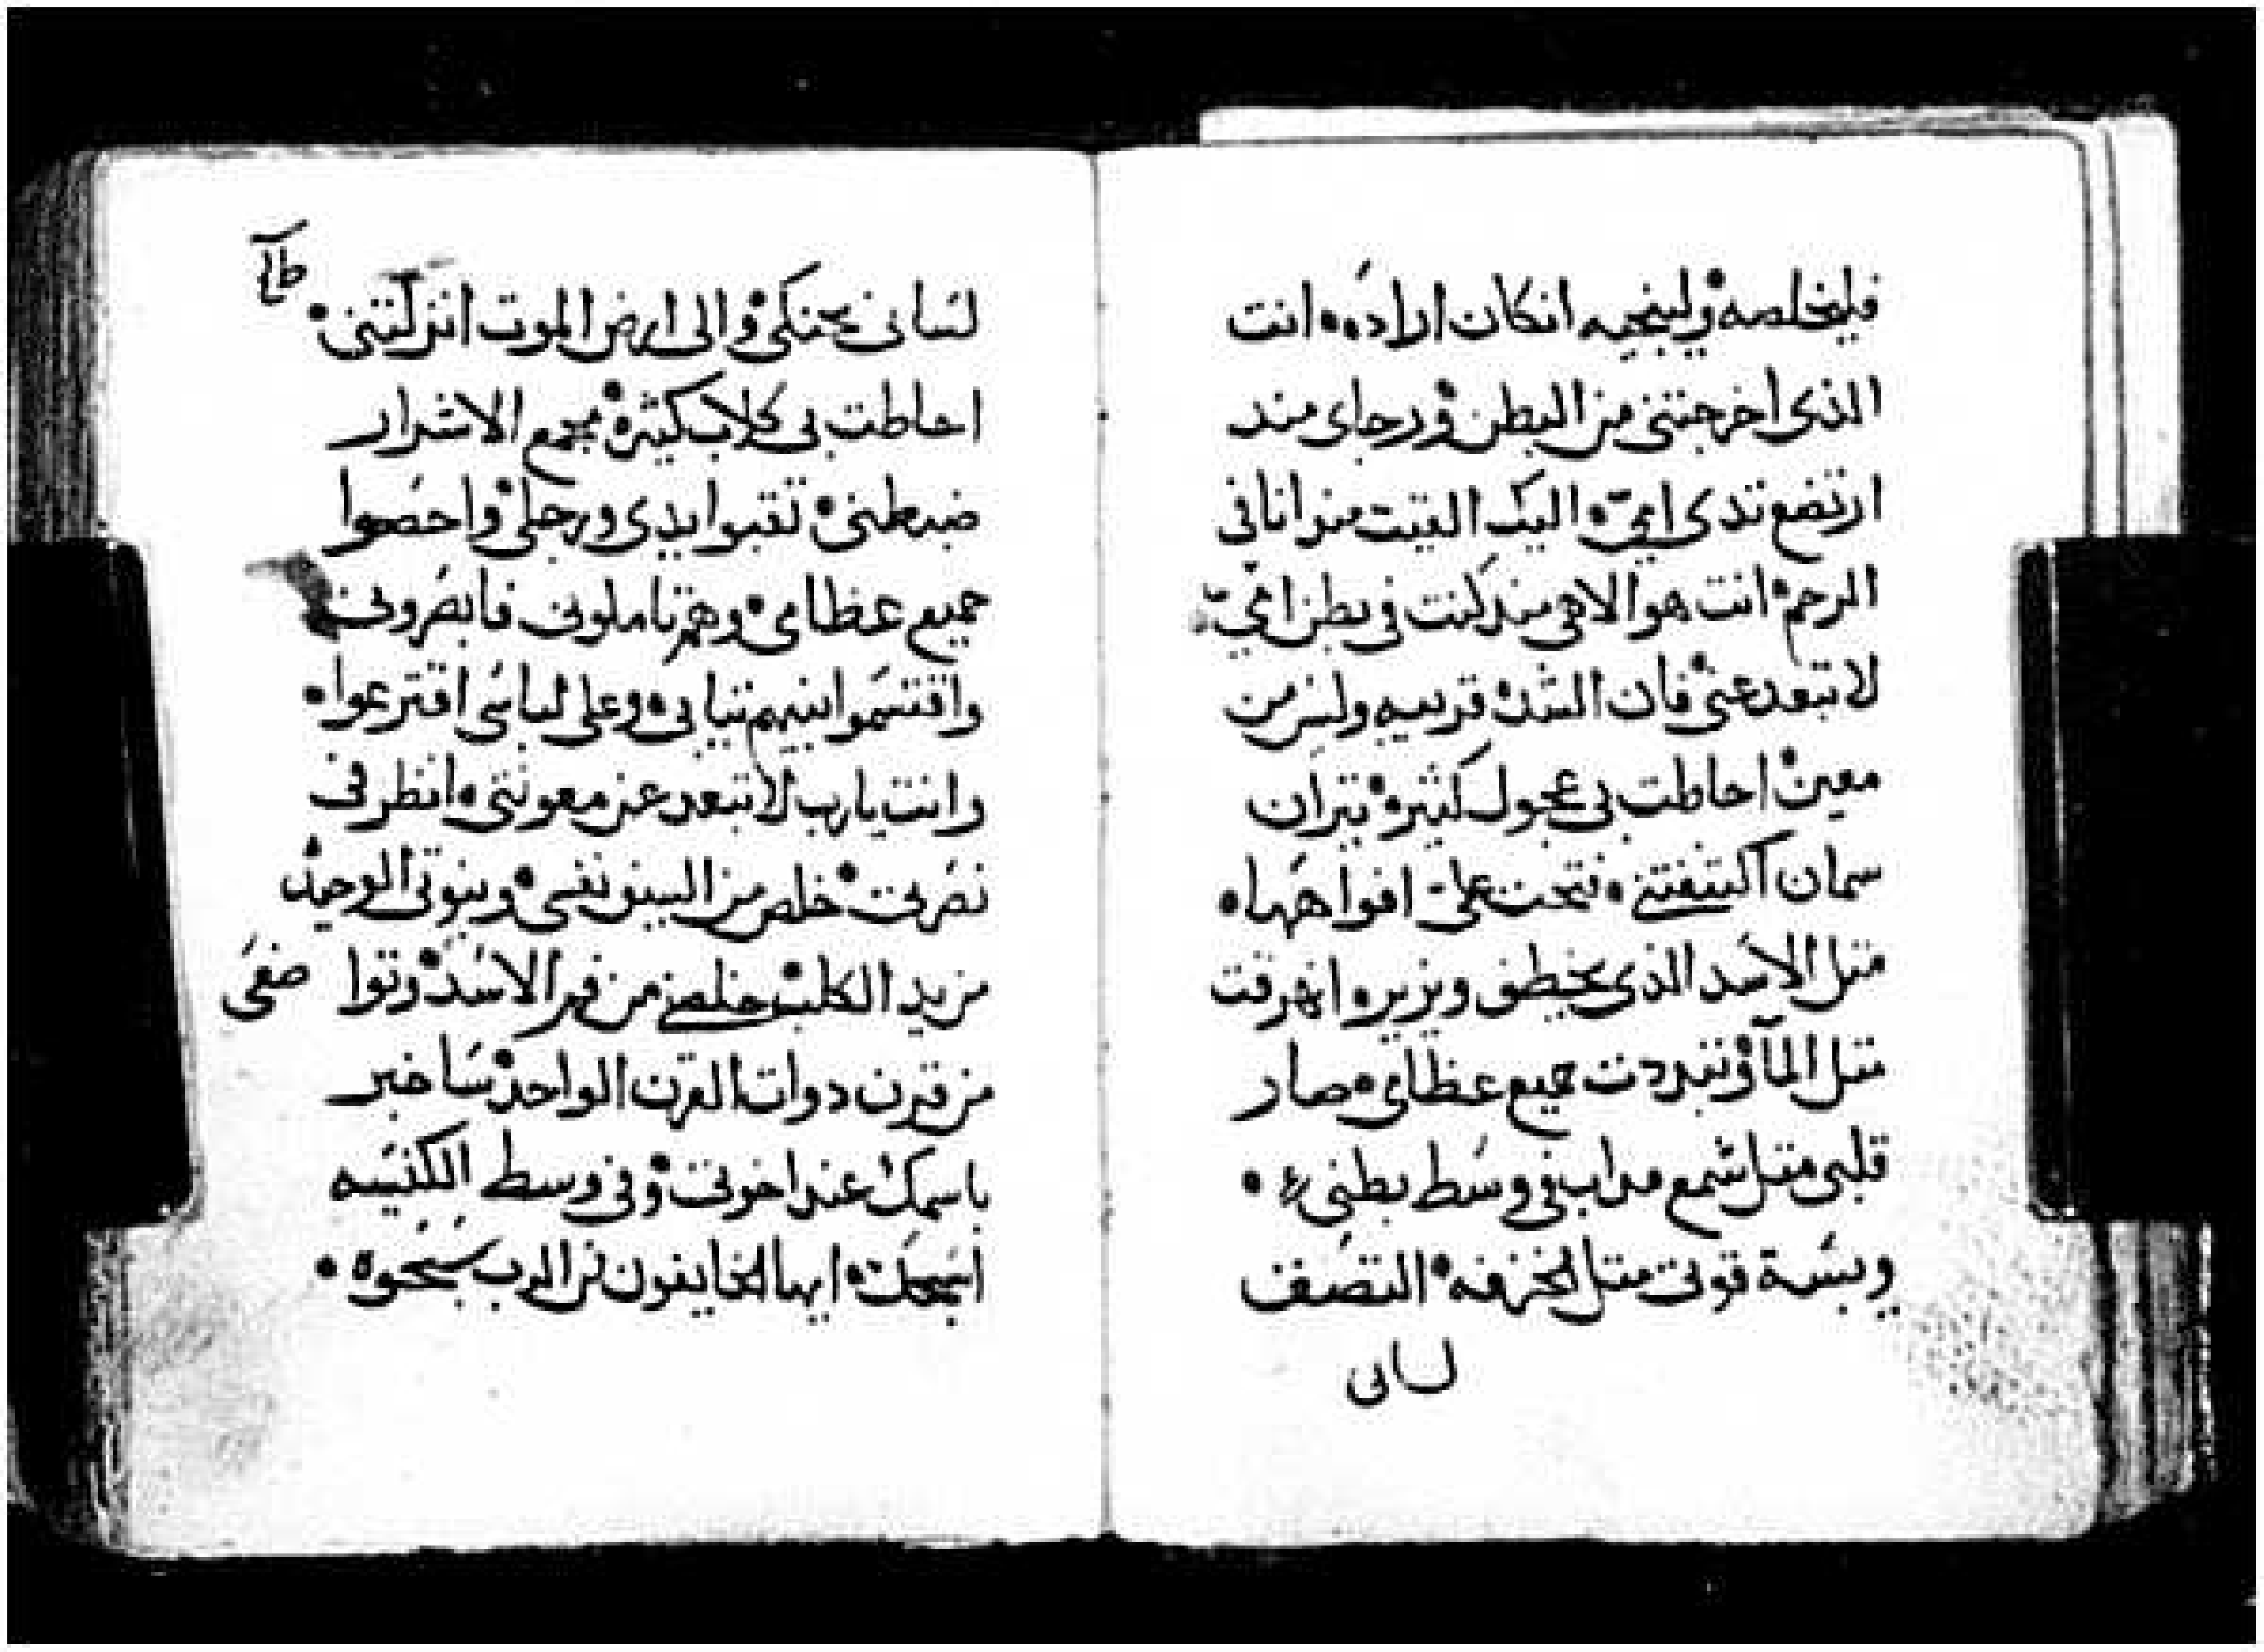 فليخلصه ولينجيه انكان اراده انت
الذى اخرجتنى من البطن ورجاى مند
ارتضع تدى امى اليك القيت مند انا فى
الرحم انت هو الاهى مند كنت فى بطن امى
لا تبعد عنى فان الشده قريبه وليس من
معين احاطت بى عجول كثيره تيران
سمان اكتنفتنى فتحت على افواهها
متل الاسد الذى يخطف ويزير انهرقت
متل المآ وتبددت جميع عظامى صار
قلبى متل شمع مداب فى وسط بطنى
ويبسة قوتى متل الخزفه التصف
لسانى
لسانى بحنكى والى ارض الموت انزلتنى
احاطت بى كلاب كثيره مجمع الاشرار
ضبطنى تقبوا يدى ورجلى واحصوا
جميع عظامى وهم تاملونى فابصرونى
واقتسموا بينهم تيابى وعلى لباسى اقترعوا
وانت يارب لا تبعد عن معونتى انظر فى
نصرتى خلص من السيف نفسى وبنوتى الوحيده
من يد الكلب خلصنى من فم الاسد وتواضعى
من قرن دوات القرن الواحد ساخبر
باسمك عند اخوتى وفى وسط الكنيسه
اسبحك ايها الخايفون من الرب سبحوه